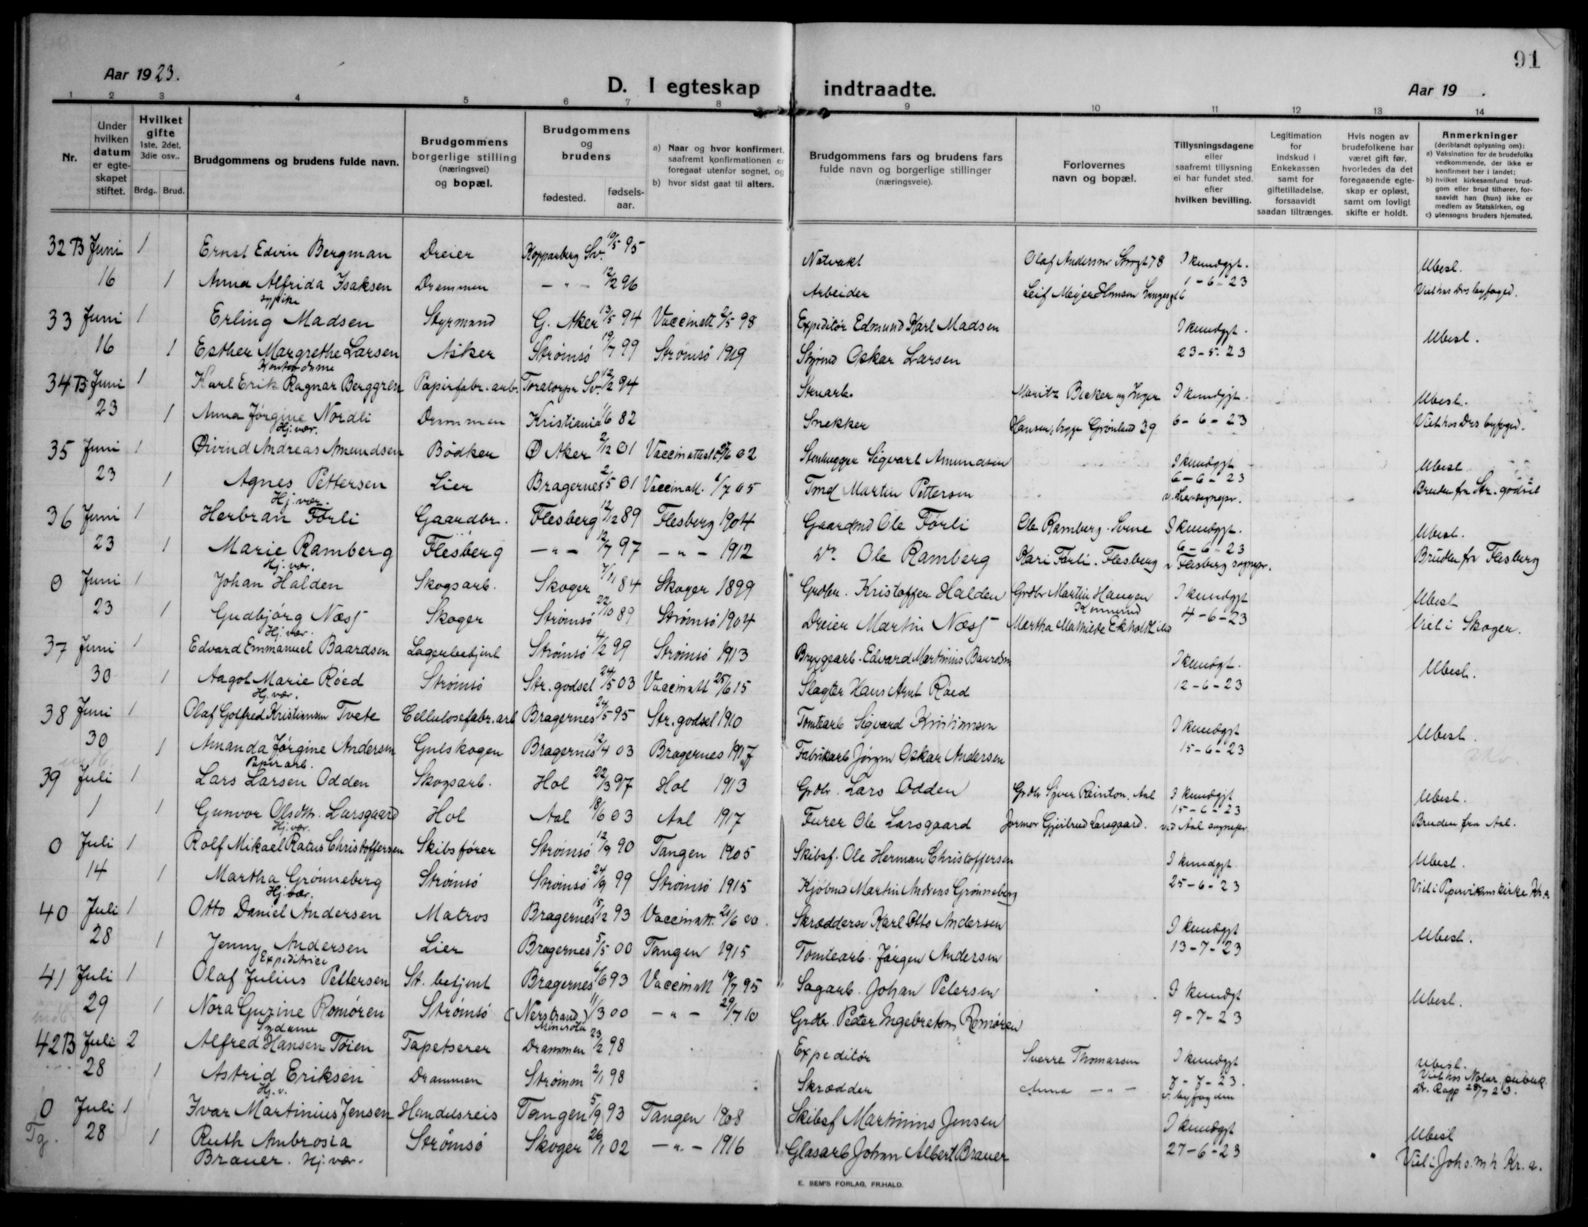 91
Aar 1923.
D. I egteskap indtraadte.
Aar 19 .
1 2 3 4 5 6 7 8 9 10 11 12 13 14
Nr.
Under hvilken datum er egteskapet stiftet.
Hvilket gifte 1ste, 2det, 3die osv.. Brdg. Brud.
Brudgommens og brudens fulde navn.
Brudgommens borgerlige stilling (næringsvei) og bopæl.
Brudgommens og brudens fødested. fødsels-aar.
a) Naar og hvor konfirmert, saafremt konfirmationen er foregaat utenfor sognet, og
b) hvor sidst gaat til alters.
Brudgommens fars og brudens fars fulde navn og borgerlige stillinger (næringsveie).
Forlovernes navn og bopæl.
Tillysningsdagene eller saafremt tillysning ei har fundet sted, efter hvilken bevilling.
Legitimation for indskud i Enkekassen samt for giftetilladelse, forsaavidt saadan tiltrænges.
Hvis nogen av brudefolkene har været gift før, hvorledes da det foregaaende egteskap er opløst, samt om lovligt skifte er holdt.
Anmerkninger (deriblandt oplysning om): a) Vaksination for de brudefolks vedkommende, der ikke er konfirmert her i landet; b) hvilket kirkesamfund brudgom eller brud tilhører, forsaavidt han (hun) ikke er medlem av Statskirken, og c) utensogns bruders hjemsted.
32 B Juni 1 Ernst Edvin Bergman Dreier Kopparberg Sv. 95 Natvakt Olaf Andersen I kundgjt. Ubesl.
16 1 Anna Alfrida Isaksen Drammen - " - 12/2 96 Arbeider Leif Meyer 1-6-23 Viet hos Drs byfoged.
sypike
33 Juni 1 Erling Madsen Styrmand G. Aker 94 Vaccinatt 98 Expeditør Edmund Karl Madsen I kundgjt. Ubesl.
16 1 Esther Margrethe Larsen Asker Strømsø 99 Strømsø 1919 Styrmd Oskar Larsen 23-5-23
Kontordame
34 B Juni 1 Karl Erik Ragnar Berggren Papirfabr. arb. 12/2 94 Stenarb. Moritz Becker og Inger I kundgjt. Ubesl.
23 1 Anna Jørgine Nordli Drammen Kristiania 1/6 82 Snekker Hansen, begge Grønland 39 6-6-23 Viet hos Drs byfoged.
Hj. vær.
35 Juni 1 Øivind Andreas Amundsen Bødker Ø Aker 2/12 01 Vaccinattest 02 Stenhugger Sigvart Amundsen I kundgjt. Ubesl.
23 1 Agnes Pettersen Lier Bragernes 2/5 01 Vaccinatt. 6/7 05 Tmd Martin Pettersen 6-6-23 Bruden fr Str. godset
Hj. vær.
36 Juni 1 Herbran Førli Gaardbr. Flesberg 12/12 89 Flesberg 1904 Gaardmd Ole Førli Ole Ramberg. I kundgjt. Ubesl.
23 1 Marie Ramberg Flesberg - " - 12/7 97 - " - 1912 Ole Ramberg Kari Førli. Flesberg 6-6-23 v. Flesberg sognepr. Bruden fr Flesberg
Hj. vær.
0 Juni 1 Johan Halden Skogsarb. Skoger 7/11 84 Skoger 1899 Grdbr. Kristoffer Halden Grdbr Martin Haugen I kundgjt Ubesl
23 1 Gudbjørg Næss Skoger Strømsø 22/10 89 Strømsø 1904 Dreier Martin Næss Martha Mathilde Ekholdt 4-6-23 Viel i Skoger.
Hj. vær.
37 Juni 1 Edvard Emmanuel Baardsen Lagerbetjent Strømsø 4/2 99 Strømsø 1913 Bryggearb. Edvard Martinius Baardsen I kundgjt. Ubesl.
30 1 Aagot Marie Røed Strømsø Str. godsel 24/5 03 Vaccinatt 25/6 15 Slagter Hans Arnt Røed 12-6-23
Hj. vær.
38 Juni 1 Olaf Golfred Kristiansen Tvete Cellulosefabr. arb Bragernes 24/5 95 Str. godsel 1910 Tomtearb Sigvard Kristiansen I kundgjt Ubesl.
30 1 Amanda Jørgine Andersen Gulskogen Bragernes 12/4 03 Bragernes 1917 Fabrikarb Jørgen Oskar Andersen 15-6-23
Papirarb.
39 Juli 1 Lars Larsen Odden Skogsarb. Hol 22/3 97 Hol 1913 Grdbr. Lars Odden Grdbr Syver Reinton. Aal I kundgjt Ubesl.
1 1 Gunvor Olsdtr. Larsgaard Hol Aal 18/6 03 Aal 1917 Furer Ole Larsgaard Jormor Gjertrud Larsgaard. 15-6-23 ved Aal sognepr Bruden fra Aal.
Hj. vær.
0 Juli 1 Rolf Mikael Ratus Christoffersen Skibsfører Strømsø 12/9 90 Tangen 1905 Skibsf. Ole Herman Christoffersen I kundgjt Ubesl.
14 1 Martha Grønneberg Strømsø Strømsø 24/9 99 Strømsø 1915 Kjøbmd Martin Andreas Grønneberg 25-6-23 Viel i Pipervikens kirke Kr. a
Hj. vær.
40 Juli 1 Otto Daniel Andersen Matros Bragernes 15/12 93 Vaccinatt. 21/6 00 Skrædderm Karl Otto Andersen I kundgjt Ubesl.
28 1 Jenny Andersen Lier Bragernes 5/5 00 Tangen 1915 Tomtearb. Jørgen Andersen 13-7-23
Expeditrice
41 Juli 1 Olaf Julius Pettersen St. betjent Bragernes 6/6 93 Vaccinatt 19/7 95 Sagarb. Johan Petersen I kundgt Ubesl.
29 1 Nora Gurine Romøren Strømsø (Nerstrand) 11/3 00 - " - 29/7 10 Grdbr. Peder Ingebretsen Romøren 9-7-23
Sydame Minesota
42 B Juli 2 Alfred Hansen Tøien Tapetserer Drammen 23/2 98 Expeditør Sverre Thomassen I kundgjt Ubesl.
28 1 Astrid Eriksen Drammen Strømm 2/1 98 Skrædder Anna - " - 7-7-23. v. byfogden Viet hos Notar. publik. Dr. Rapp 28/7 23.
Hj. v.
0 Juli 1 Ivar Martinius Jensen Handelsreis Tangen 5/9 93 Tangen 1908 Skibsf Martinius Jensen I kundgjt Ubesl
Tg. 28 1 Ruth Ambrosia Strømsø Skoger 26/1 02 - " - 1916 Glasarb Johan Albert Brauer 27-6-23 Viel i Johs. m k Kr. a.
Brauer. Hj. vær.
E. SEM'S FORLAG, FR.HALD.